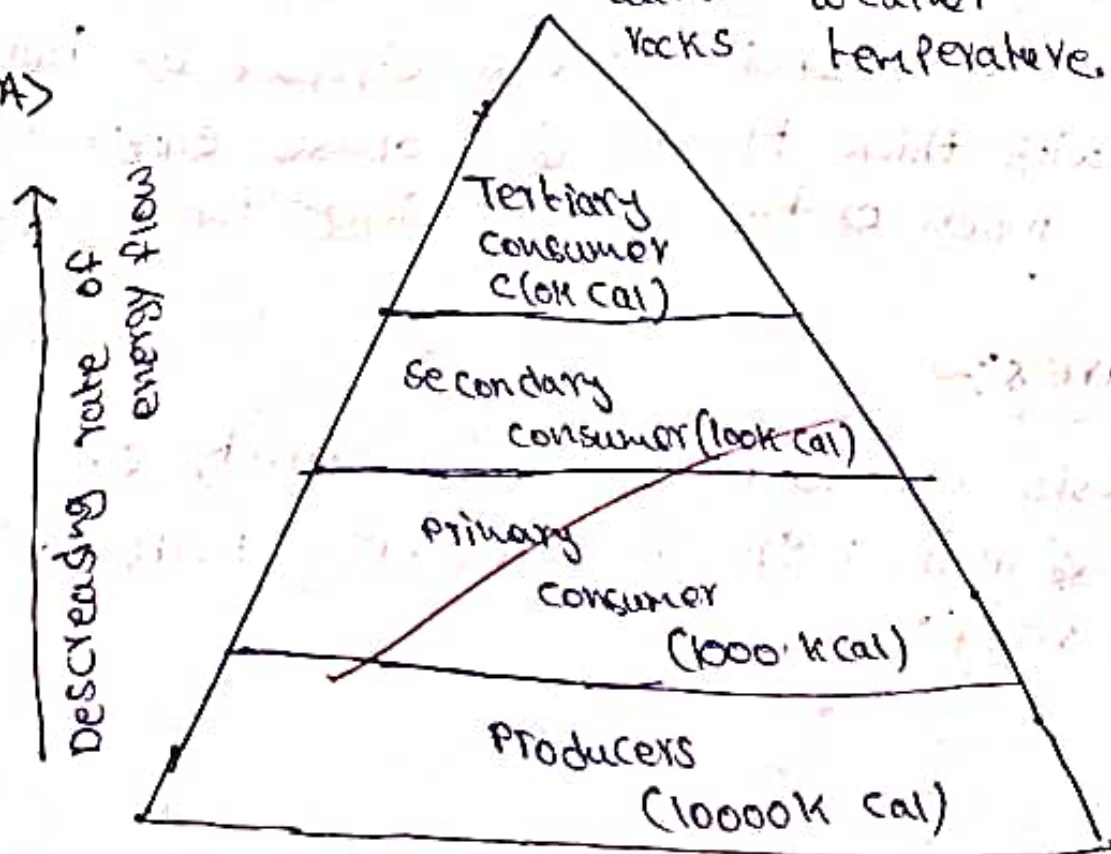 weather
rocks temperature.
A>
Descreasing rate of
energy flow
Tertiary
consumer
(10K Cal)
Secondary
consumer (100K Cal)
Primary
consumer
(1000 · K Cal)
Producers
(10000K Cal)